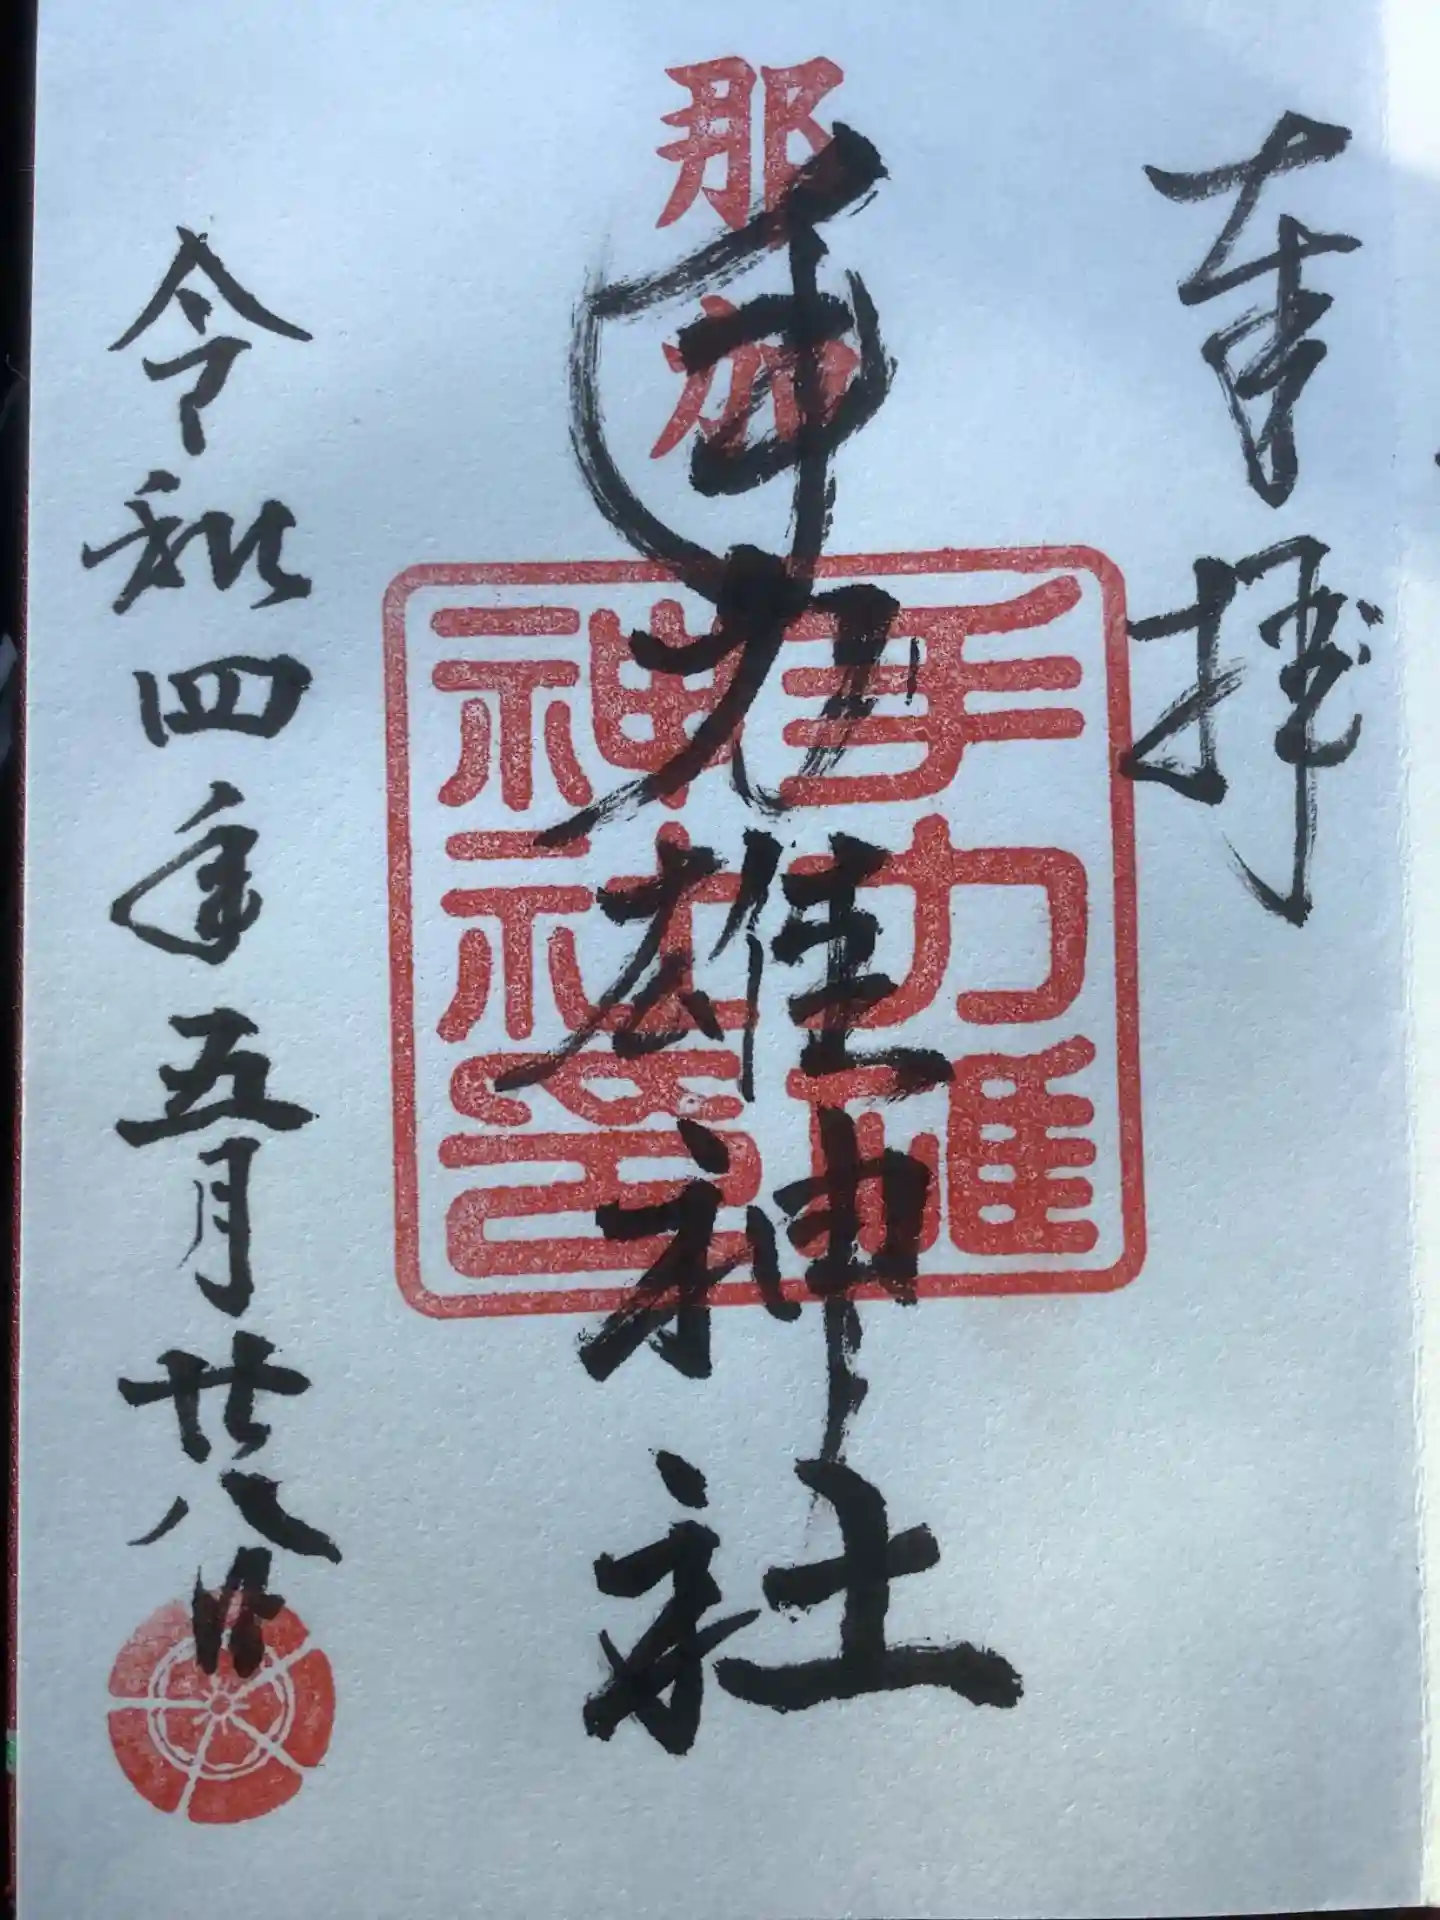 奉拝
那加
手力雄神社
手力雄
神社印
令和四年五月廿八日